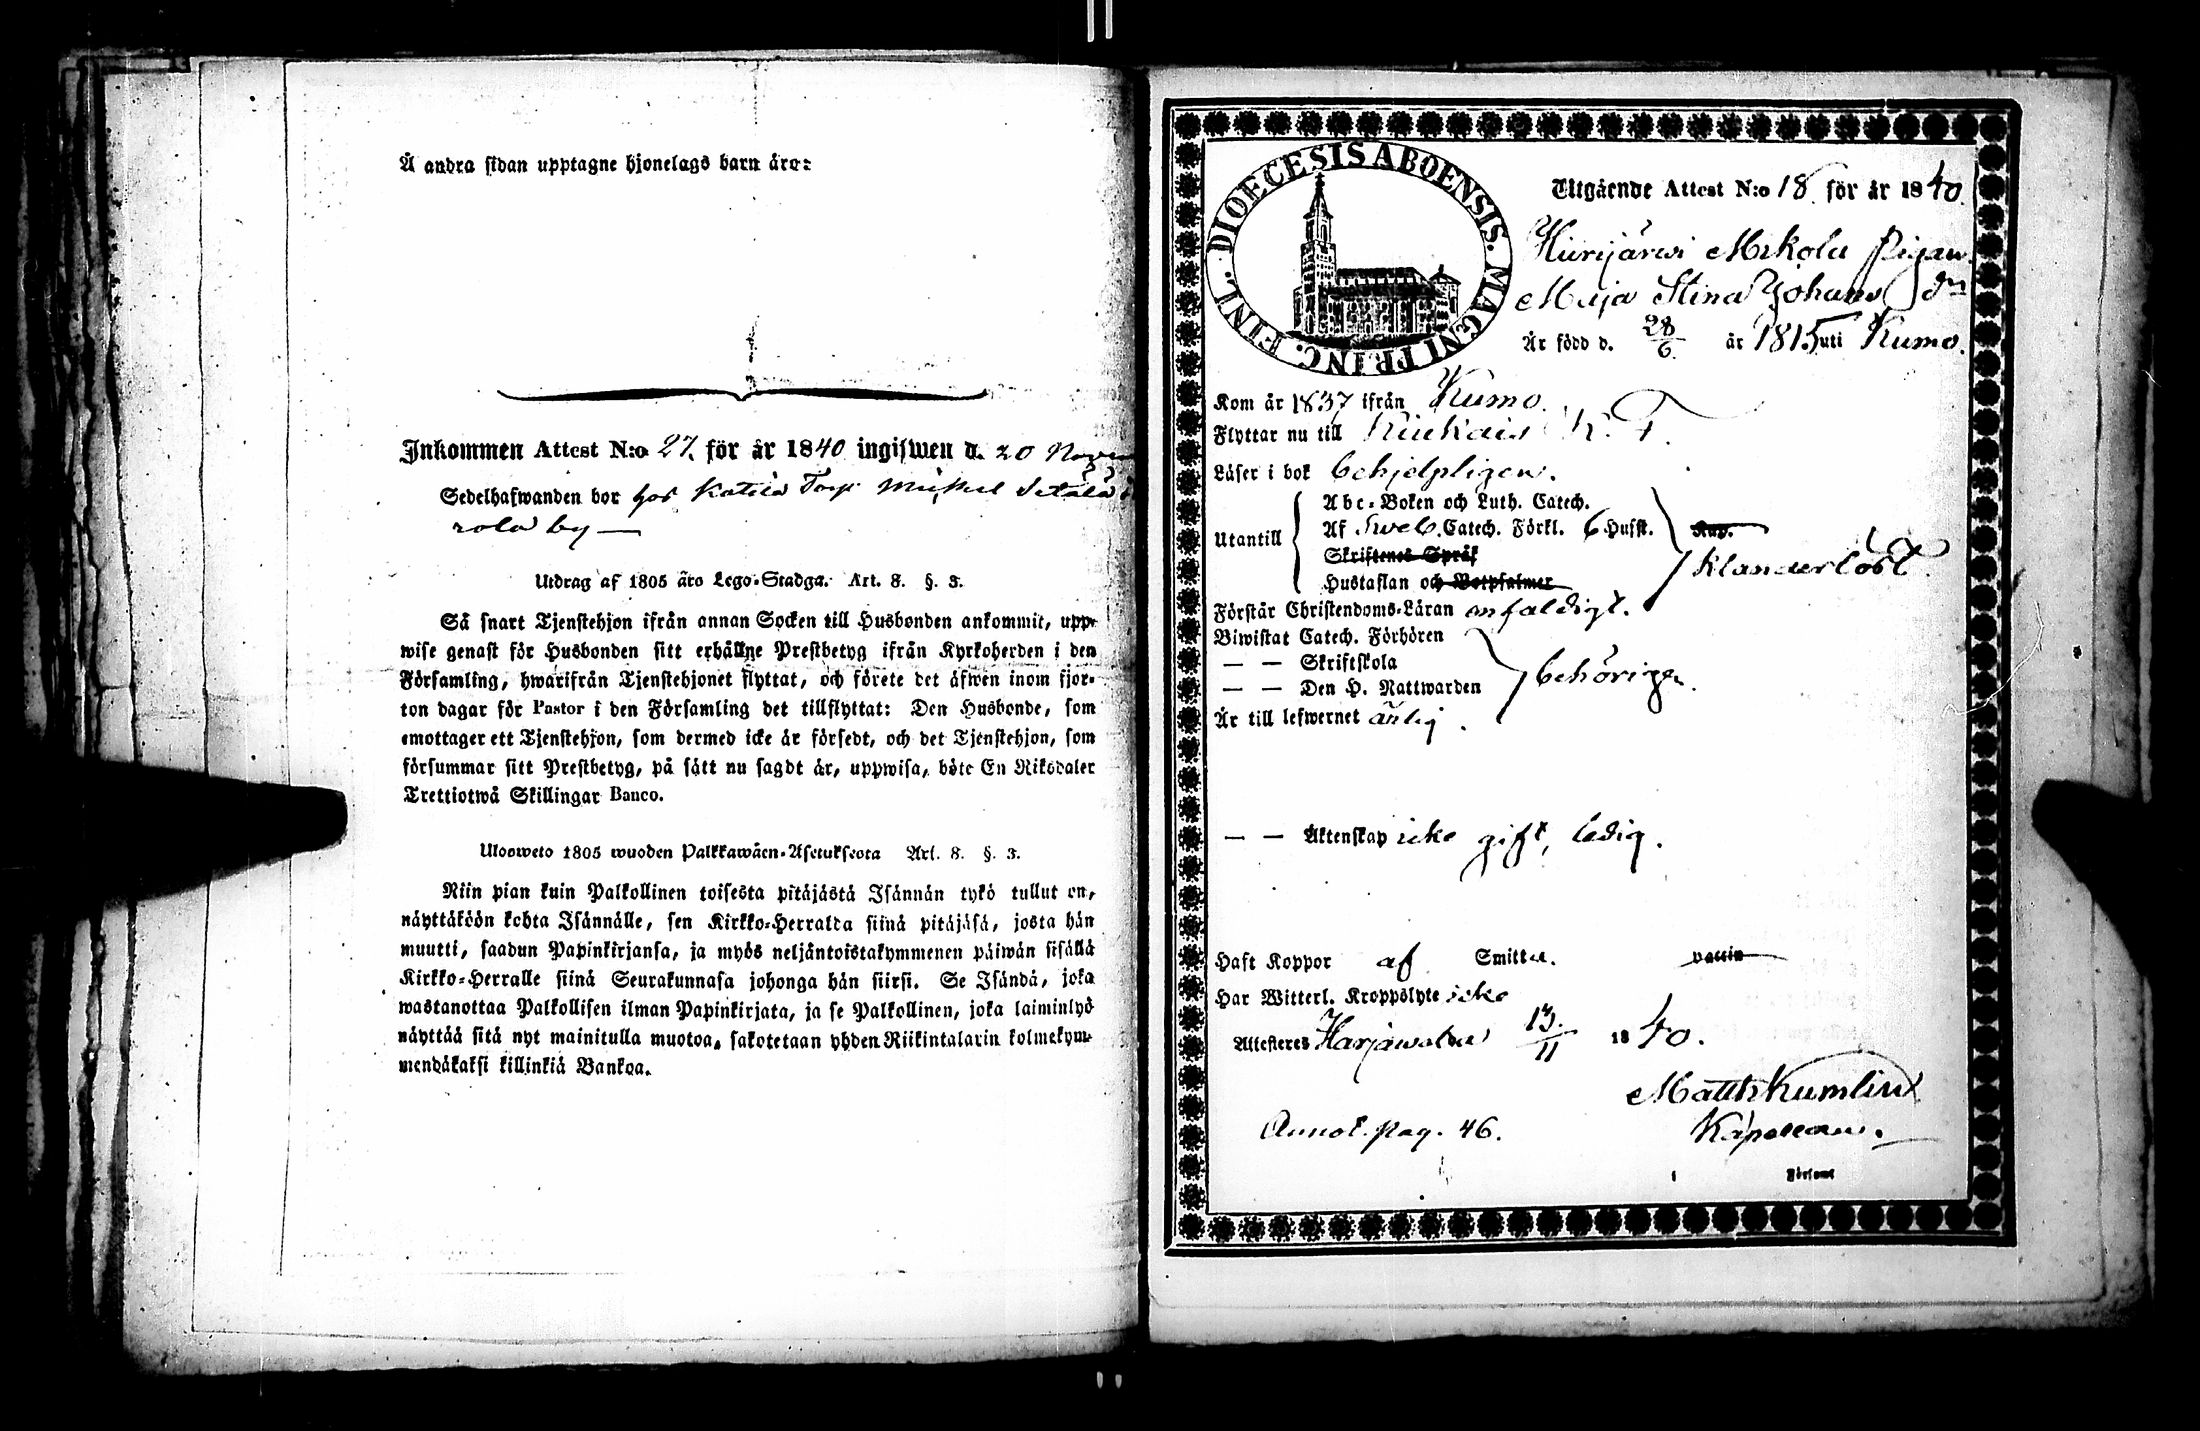 Å andra sidan upptagne hjonelags barn äro:
Inkommen Attest N:o 27. för år 1840 ingifwen d. 20 Novem
Sedelhafwanden bor hos Katila Torp Michel Setälä
rola by —
Utdrag af 1805 års Lego-Stadga. Art. 8. §. 3.
Så snart Tjenstehjon ifrån annan Socken till Husbonden ankommit, upp-
wise genast för Husbonden sitt erhållne Prestbetyg ifrån Kyrkoherden i den
Församling, hwarifrån Tjenstehjonet flyttat, och förete det äfwen inom fjor-
ton dagar för Pastor i den Församling det tillflyttat: Den Husbonde, som
emottager ett Tjenstehjon, som dermed icke är försedt, och det Tjenstehjon, som
försummar sitt Prestbetyg, på sätt nu sagdt är, uppwisa, böte En Riksdaler
Trettiotwå Skillingar Banco.
Ulosweto 1805 wuoden Palkkawäen-Asetuksesta Art. 8. §. 3.
Niin pian kuin Palkollinen toisesta pitäjästä Isännän tykö tullut on,
näyttäköön kohta Isännälle, sen Kirkko-Herralda siinä pitäjäsä, josta hän
muutti, saadun Papinkirjansa, ja myös neljäntoistakymmenen päiwän sisällä
Kirkko-Herralle siinä Seurakunnasa johonga hän siirsi. Se Isändä, joka
wastanottaa Palkollisen ilman Papinkirjata, ja se Palkollinen, joka laiminlyö
näyttää sitä nyt mainitulla muotoa, sakotetaan yhden Riikintalarin kolmekym-
mendäkaksi killinkiä Bankoa.
DIOECESIS ABOENSIS. MAGNI PRINC. FINL.
Utgående Attest N:o 18. för år 1840.
Hiirijärwi Mikola Pigan
Maja Stina Johansdr
Är född d. 28/6. år 1815 uti Kumo.
Kom år 1837 ifrån Kumo.
Flyttar nu till Kiukais K. F.
Läser i bok behjelpligen.
Abc-Boken och Luth. Catech.
Utantill Af Sweb. Catech. Förkl. 6 Husst. Kap.
Skriftenes Språk
klanderlöst.
Hustaflan och Botpsalmer
Förstår Christendoms-Läran enfaldigt.
Biwistat Catech. Förhören
— — Skriftskola
behörigen.
— — Den H. Nattwarden
Är till lefwernet ärlig.
— — Äktenskap icke gift, ledig.
Haft Koppor af Smitta. vaccin
Har Witterl. Kroppslyte icke
Attesteres Harjawalda 13/11 1840.
Matth Kumlin
Annot. pag. 46. Kapellan.
i Församl